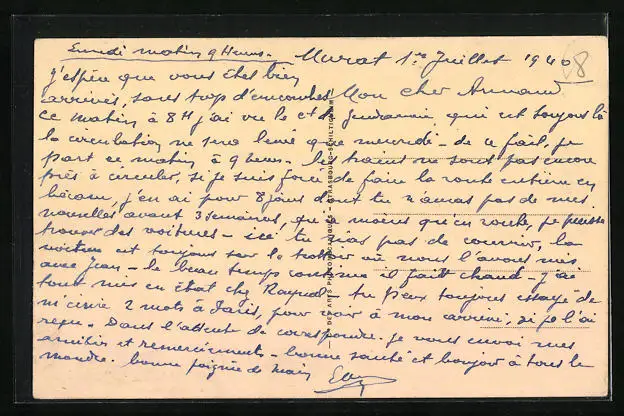 Lundi matin 9 Heures. - Murat 1er Juillet 1940
J'espère que vous êtes bien
arrivés, sans trop d'encombres Mon cher Armand,
Ce matin à 8H j'ai vu le ct de gendarmerie, qui est toujours là
la circulation ne sera levée que mercredi - de ce fait, je
part ce matin à 9 heures. les trains ne sont pas encore
près à circuler, si je suis forcé de faire la route entière en
bécane, j'en ai pour 8 jours dont tu n'auras pas de mes
nouvelles avant 3 semaines, à moins qu'en route, je puisse
trouver des voitures - ici tu n'as pas de courrier, la
voiture est toujours sur le trottoir où nous l'avons mis
avec Jean - le beau temps continue il fait chaud - j'ai
tout mis en état chez Raynal - tu peux toujours essayé de
m'écrire 2 mots à Paris, pour voir à mon arrivée, si je l'ai
reçu. Dans l'attente de correspondre. je vous envoi mes
amitiés et remerciements - bonne santé et bonjour à tout le
monde. bonne poignée de main
DES ARTS PHOTOMÉCANIQUES - STRASBOURG-SCHILTIGHEIM